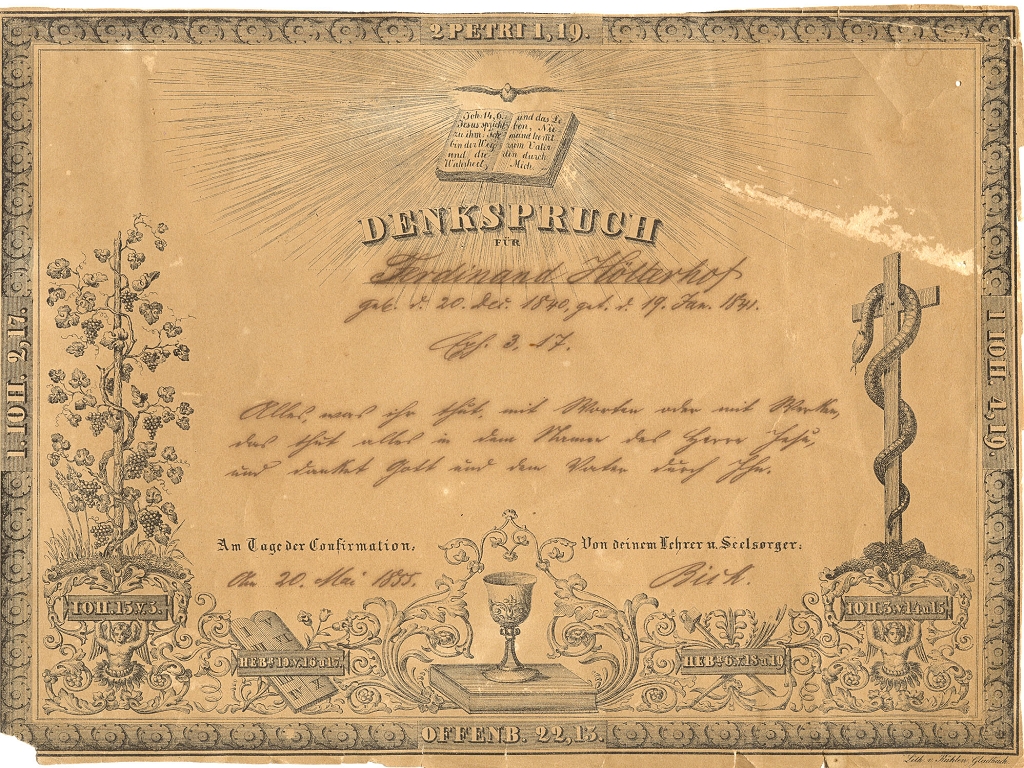 2 PETRI 1, 19.
Joh. 14, 6.
Jesus spricht
zu ihm: Ich
bin der Weg
und die
Wahrheit,
und das Le-
ben, Nie-
mand komt
zum Vater
den durch
Mich
DENKSPRUCH
FÜR
Ferdinand Hölterhof
geb. d. 20. Dec. 1840, get. d. 19. Jan. 1841.
3, 17.
1. IOH. 2, 17.
1 IOH. 4, 19.
Alles, was ihr thut, mit Worten oder mit Werken,
das thut alles in dem Namen des Herrn Jesu,
und danket Gott und dem Vater durch Ihn.
Am Tage der Confirmation,
Von deinem Lehrer u. Seelsorger:
20. Mai 1855.
IOH. 15. v. 5.
IOH. 3. v. 14 u. 15
HEB. 10. v. 16 u. 17.
HEB. 6. v. 18 u. 19
OFFENB. 22, 13.
Lith. v. Kühlen Gladbach.